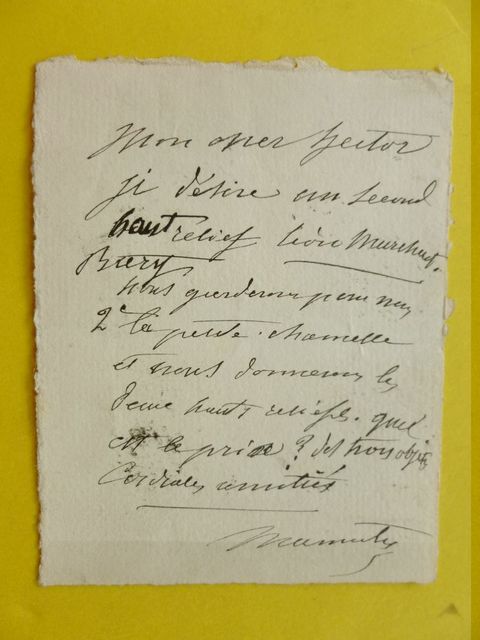 Mon cher Hector
je désire un second
haut relief Léon Marchand.
Barye,
nous garderons pour nous
2e la petite chamelle
et nous donnerons les
deux hauts reliefs. quel
est le prix ? des trois objets
Cordiales amitiés